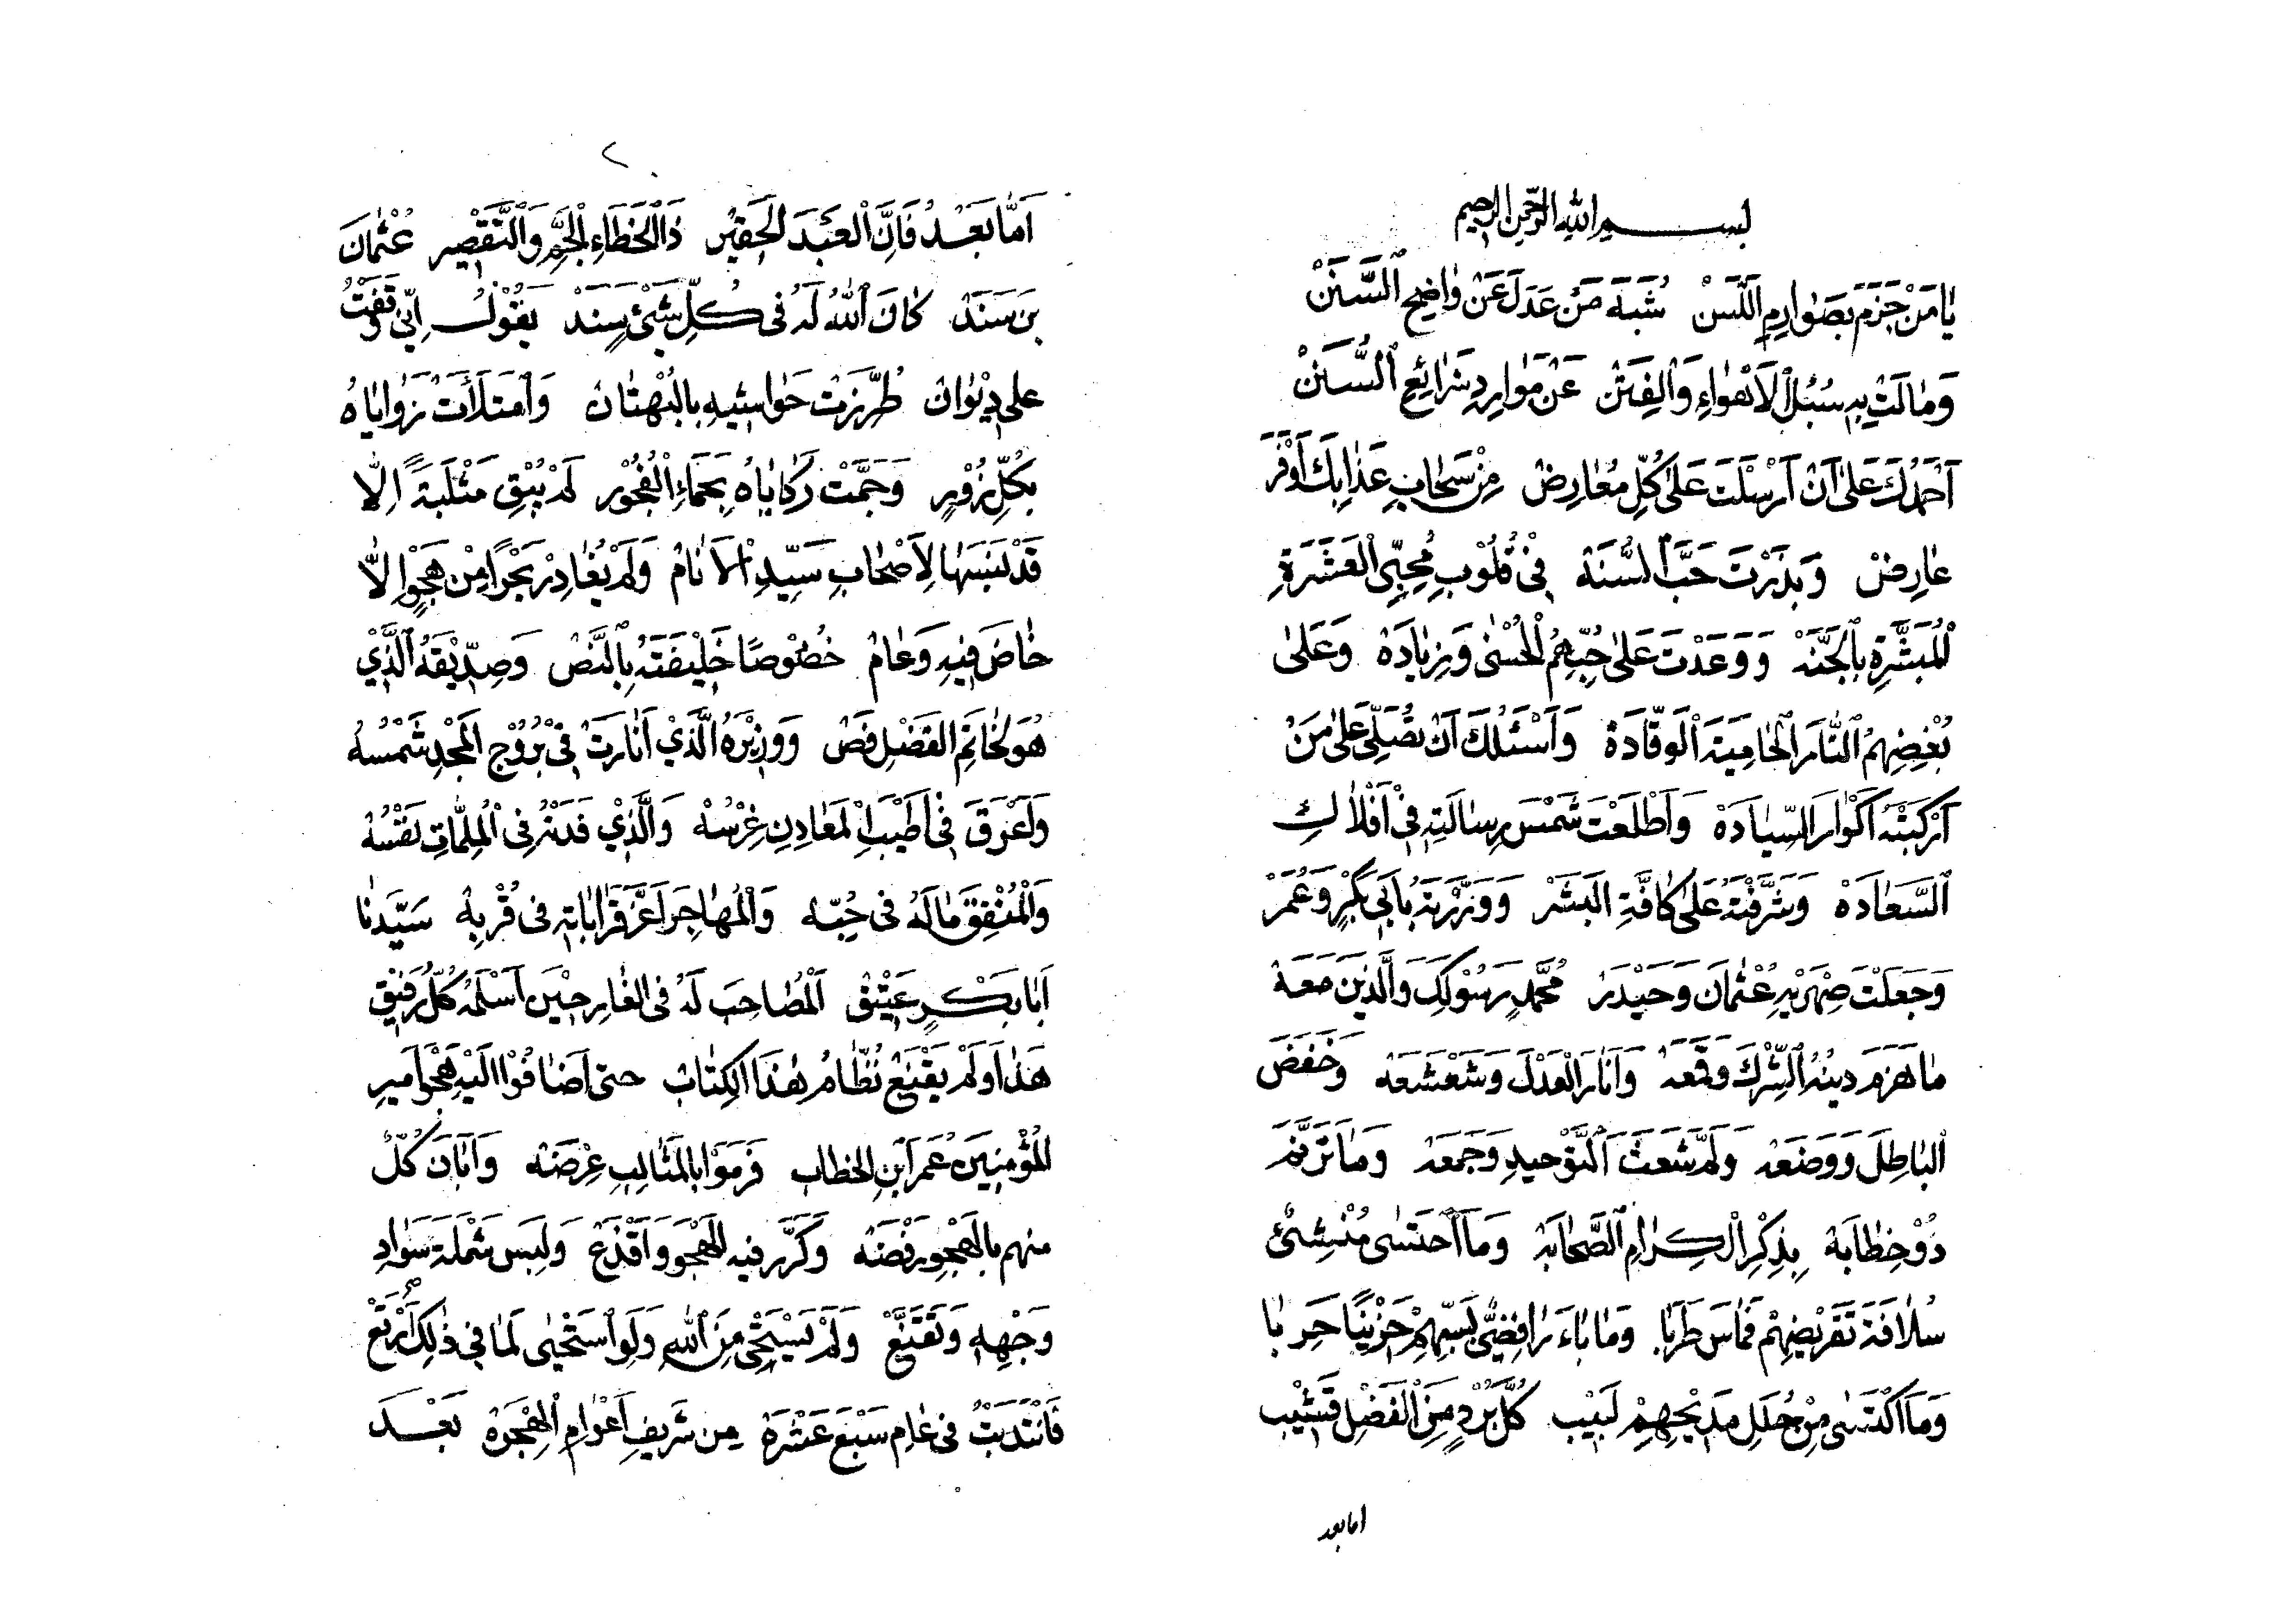 بسم الله الرحمن الرحيم
يَامَنْ جَزَمَ بِصَوَارِمِ اللَّسَنْ شُبَهَ مَنْ عَدَلَ عَنْ وَاضِحِ السَّنَنْ
وَمَالَتْ بِهِ سُبُلُ الْاَهْوَاءِ وَالْفِتَنْ عَنْ مَوَارِدِ شَرَائِعِ السُّنَنْ
اَحْمَدُكَ عَلَى اَنْ اَرْسَلْتَ عَلَى كُلِّ مُعَارِضْ مِنْ سَحَابِ عَذَابِكَ اَوْفَرَ
عَارِضْ وَبَذَرْتَ حَبَّ السُّنَّهْ فِي قُلُوبِ مُحِبِّي الْعَشَرَةِ
الْمُبَشَّرَةِ بِالْجَنَّهْ وَوَعَدْتَ عَلَى حُبِّهِمُ الْحُسْنَى وَزِيَادَهْ وَعَلَى
بُغْضِهِمُ النَّارَ الْحَامِيَةَ الْوَقَّادَهْ وَاَسْئَلُكَ اَنْ تُصَلِّيَ عَلَى مَنْ
اَرْكَبْتَهُ اَكْوَارَ السِّيَادَهْ وَاَطْلَعْتَ شَمْسَ رِسَالَتِهِ فِي اَفْلَاكِ
السَّعَادَهْ وَشَرَّفْتَهُ عَلَى كَافَّةِ الْبَشَرْ وَوَزَّرْتَهُ بِاَبِي بَكْرٍ وَعُمَرْ
وَجَعَلْتَ صِهْرَيْهِ عُثْمَانَ وَحَيْدَرْ مُحَمَّدٍ رَسُوْلِكَ وَالَّذِينَ مَعَهْ
مَا هَزَمَ دِينُهُ الشِّرْكَ وَقَمَعَهْ وَاَنَارَ الْعَدْلَ وَشَعْشَعَهْ وَخَفَضَ
الْبَاطِلَ وَوَضَعَهْ وَلَمَّ شَعَثَ التَّوْحِيدِ وَجَمَعَهْ وَمَا تَرَنَّمَ
ذُوْ خِطَابَهْ بِذِكْرِ الْكِرَامِ الصَّحَابَهْ وَمَا احْتَسَى مُنْشِئُ
سُلَافَةَ تَقْرِيضِهِمْ فَمَاسَ طَرَبَا وَمَا بَاءَ رَافِضِيٌّ بِسَبِّهِمْ حَزِيْنًا حَرِبَا
وَمَا اكْتَسَى مِنْ حُلَلِ مَدِيْحِهِمْ لَبِيْبْ كُلَّ بُرْدٍ مِنَ الْفَضْلِ قَشِيْب
اما بعد
٢
اَمَّا بَعْدُ فَاِنَّ الْعَبْدَ الْحَقِيْرْ ذَا الْخَطَاءِ الْجَمِّ وَالتَّقْصِيرْ عُثْمَانَ
بْنَ سَنَدْ كَانَ اللّٰهُ لَهُ فِي كُلِّ شَيْئٍ سَنَدْ يَقُوْلُ اِنِّي وَقَفْتُ
عَلَى دِيْوَانْ طُرِّزَتْ حَوَاشِيهِ بِالْبُهْتَانْ وَامْتَلَأَتْ زَوَايَاهُ
بِكُلِّ زُوْرٍ وَجَمَّتْ رَكَايَاهُ بِحَمَاءِ الْفُجُوْرِ لَمْ يُبْقِ مَثْلَبَةً اِلَّا
قَدْ نَسَبَهَا لِاَصْحَابِ سَيِّدِ الْاَنَامْ وَلَمْ يُغَادِرْ بَحْرًا مِنْ هَجْوٍ اِلَّا
خَاضَ فِيهِ وَعَامْ خُصُوْصًا خَلِيْفَتَهُ بِالنَّصْ وَصِدِّيْقَهُ الَّذِيْ
هُوَ لِخَاتَمِ الْفَضْلِ فَصْ وَوَزِيْرَهُ الَّذِي اَنَارَتْ فِي بُرُوْجِ الْمَجْدِ شَمْسُهْ
وَاَعْرَقَ فِي اَطْيَبِ الْمَعَادِنِ غَرْسُهْ وَالَّذِيْ فَدَتْهُ فِي الْمُلِمَّاتِ نَفْسُهْ
وَالْمُنْفِقَ مَالَهُ فِي حُبِّهْ وَالْمُهَاجِرَ اَعَزَّ قَرَابَاتِهِ فِي قُرْبِهْ سَيِّدَنَا
اَبَا بَكْرٍ عَتِيْقْ الْمُصَاحِبَ لَهُ فِي الْغَارِ حِيْنَ اَسْلَمَهُ كُلُّ رَفِيْقْ
هٰذَا وَلَمْ يَقْنَعْ نُظَّامُ هٰذَا الْكِتَابْ حتى اَضَافُوْا اِلَيْهِ هَجْوَ اَمِيرِ
الْمُؤْمِنِيْنَ عُمَرَ ابْنِ الْخَطَّاب فَرَمَوْا بِالْمَثَالِبِ عِرْضَهْ وَاَبَانَ كُلٌّ
مِنهم بِالْهَجْوِ رَفْضَهْ وَكَرَّرَ فِيهِ الْهَجْوَ وَاَقْذَعْ وَلَبِسَ شَمْلَةَ سَوَادِ
وَجْهِهِ وَتَقَنَّعْ وَلَمْ يَسْتَحْيِ مِنَ اللّٰهِ وَلَوِ اسْتَحْيَى لَمَا فِي ذٰلِكَ اَرْتَعْ
فَانْتَدَبْتُ فِي عَامِ سَبْعَ عَشْرَةَ مِنْ شَرِيفِ اَعْوَامِ الْهِجْرَهْ بَعْدَ